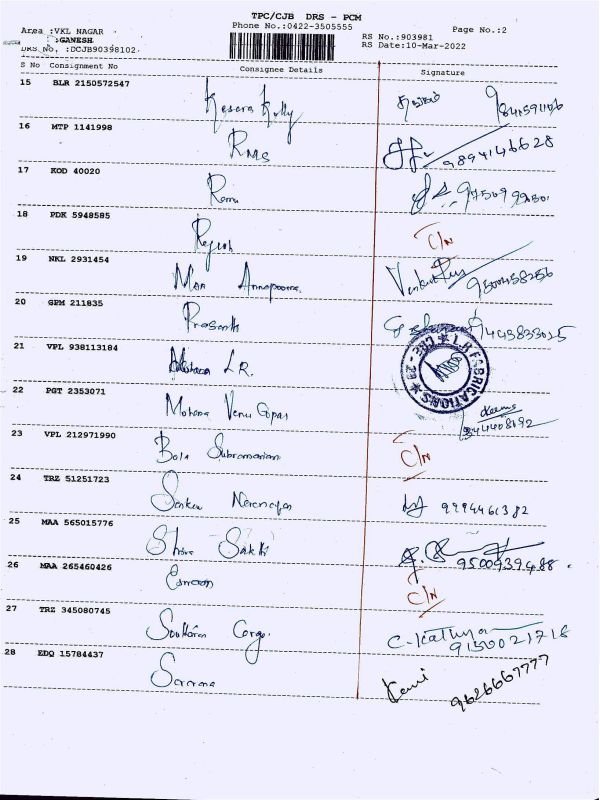 TPC/CJB DRS - PCM
Phone No.:0422-3505555
Page No.:2
Area :VKL NAGAR
:GANESH
DRS No. :DCJB90398102
RS No.:903981
RS Date:10-Mar-2022
S No Consignment No Consignee Details Signature
15 BLR 2150572547
16 MTP 1141998 RMS 9894146628
17 KOD 40020 Ramu
18 PDK 5948585 Rajesh C/N
19 NKL 2931454 Man Annapoorna 9500458256
20 GPM 211835 Prasanth 9443833025
21 VPL 938113184 L.R.
L.R FABRICATIONS
CBE - 29
22 PGT 2353071 Mohana Venu Gopal
23 VPL 212971990 Bala Subramanian C/N
24 TRZ 51251723 9994461382
25 MAA 565015776 Shiva Sakthi 9500939488
26 MAA 265460426 C/N
27 TRZ 345080745 Cargo 9150021718
28 EDQ 15784437 Sarvana 9626667777